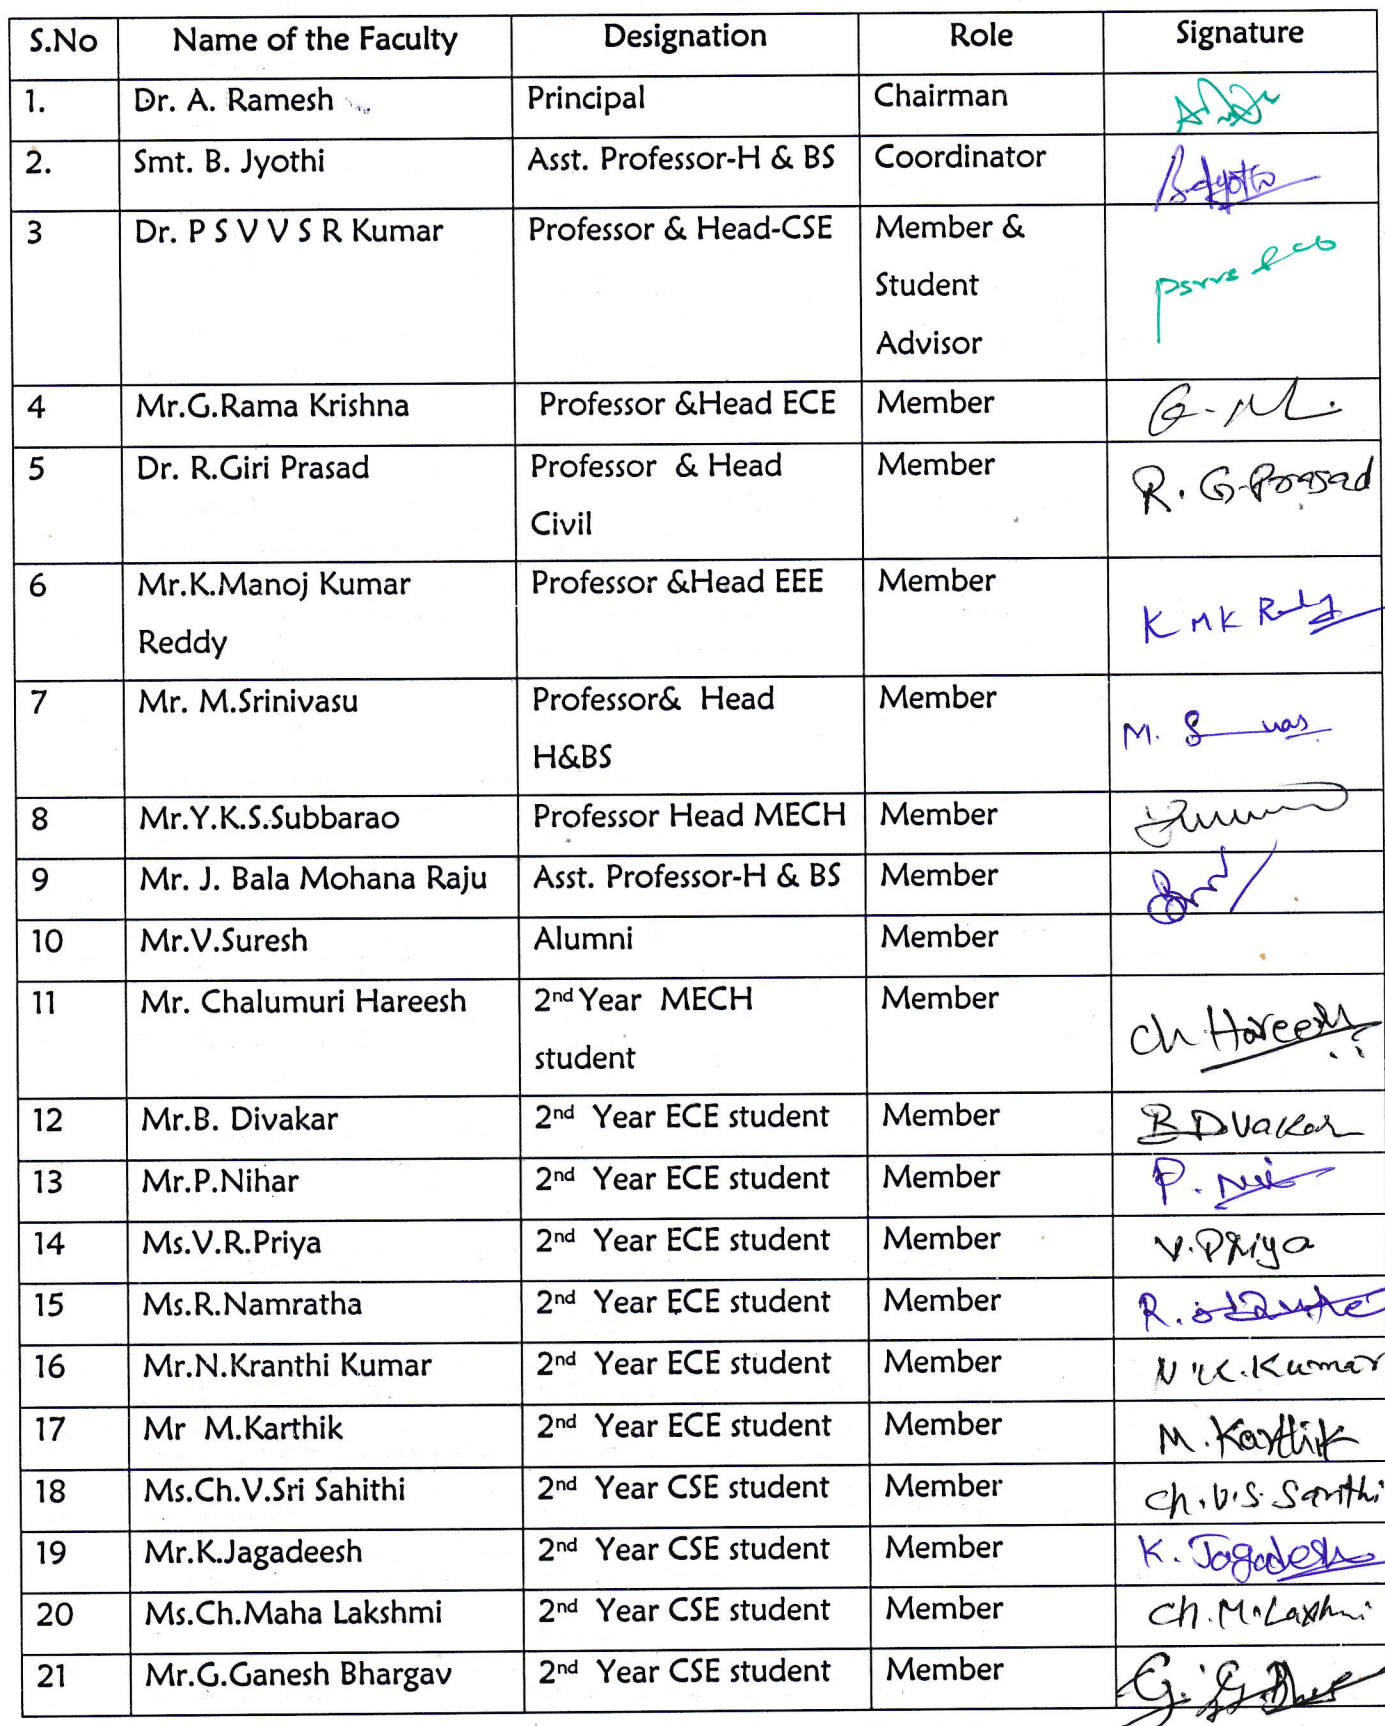 S.No Name of the Faculty Designation Role Signature
1. Dr. A. Ramesh Principal Chairman
2. Smt. B. Jyothi Asst. Professor-H & BS Coordinator B. Jyothi
3 Dr. P S V V S R Kumar Professor & Head-CSE Member &
Student
Advisor
4 Mr.G.Rama Krishna Professor &Head ECE Member
5 Dr. R.Giri Prasad Professor & Head Member R. G. Prasad
Civil
6 Mr.K.Manoj Kumar Professor &Head EEE Member K M K Reddy
Reddy
7 Mr. M.Srinivasu Professor& Head Member M.
H&BS
8 Mr.Y.K.S.Subbarao Professor Head MECH Member
9 Mr. J. Bala Mohana Raju Asst. Professor-H & BS Member
10 Mr.V.Suresh Alumni Member
11 Mr. Chalumuri Hareesh 2nd Year MECH Member Ch Hareesh
student
12 Mr.B. Divakar 2nd Year ECE student Member B Dvakar
13 Mr.P.Nihar 2nd Year ECE student Member P.
14 Ms.V.R.Priya 2nd Year ECE student Member V.Priya
15 Ms.R.Namratha 2nd Year ECE student Member R.
16 Mr.N.Kranthi Kumar 2nd Year ECE student Member N.K.Kumar
17 Mr M.Karthik 2nd Year ECE student Member M.Karthik
18 Ms.Ch.V.Sri Sahithi 2nd Year CSE student Member Ch.V.S.
19 Mr.K.Jagadeesh 2nd Year CSE student Member K. Jagadesh
20 Ms.Ch.Maha Lakshmi 2nd Year CSE student Member Ch.M.Laxhmi
21 Mr.G.Ganesh Bhargav 2nd Year CSE student Member G. G.